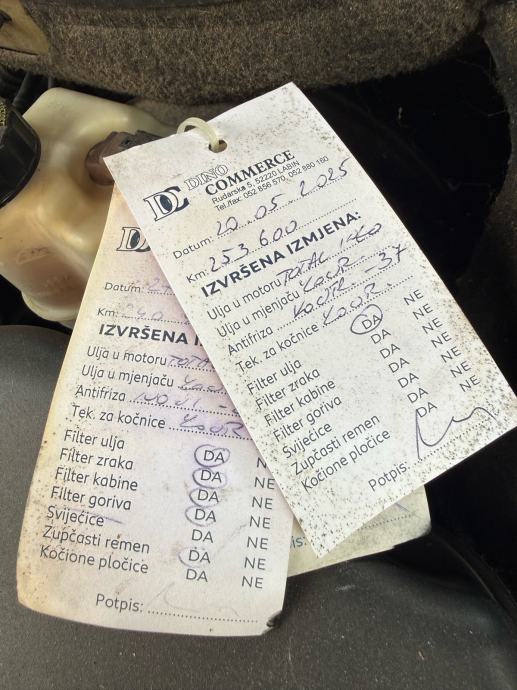 DC DINO
COMMERCE
Rudarska 5, 52220 LABIN
Tel./fax: 052 856 570, 052 880 160
Datum: 20.05.2025
Km: 253.600
IZVRŠENA IZMJENA:
Ulja u motoru TOTAL
Ulja u mjenjaču KONTR.
Antifriza KONTR. -37
Tek. za kočnice KONTR.
Filter ulja DA NE
Filter zraka DA NE
Filter kabine DA NE
Filter goriva DA NE
Svijećice DA NE
Zupčasti remen DA NE
Kočione pločice DA NE
Potpis:
D
Datum:
Km:
IZVRŠENA I
Ulja u motoru
Ulja u mjenjaču
Antifriza
Tek. za kočnice
Filter ulja DA N
Filter zraka DA NE
Filter kabine DA NE
Filter goriva DA NE
Svijećice DA NE
Zupčasti remen DA NE
Kočione pločice DA NE
Potpis:
is: